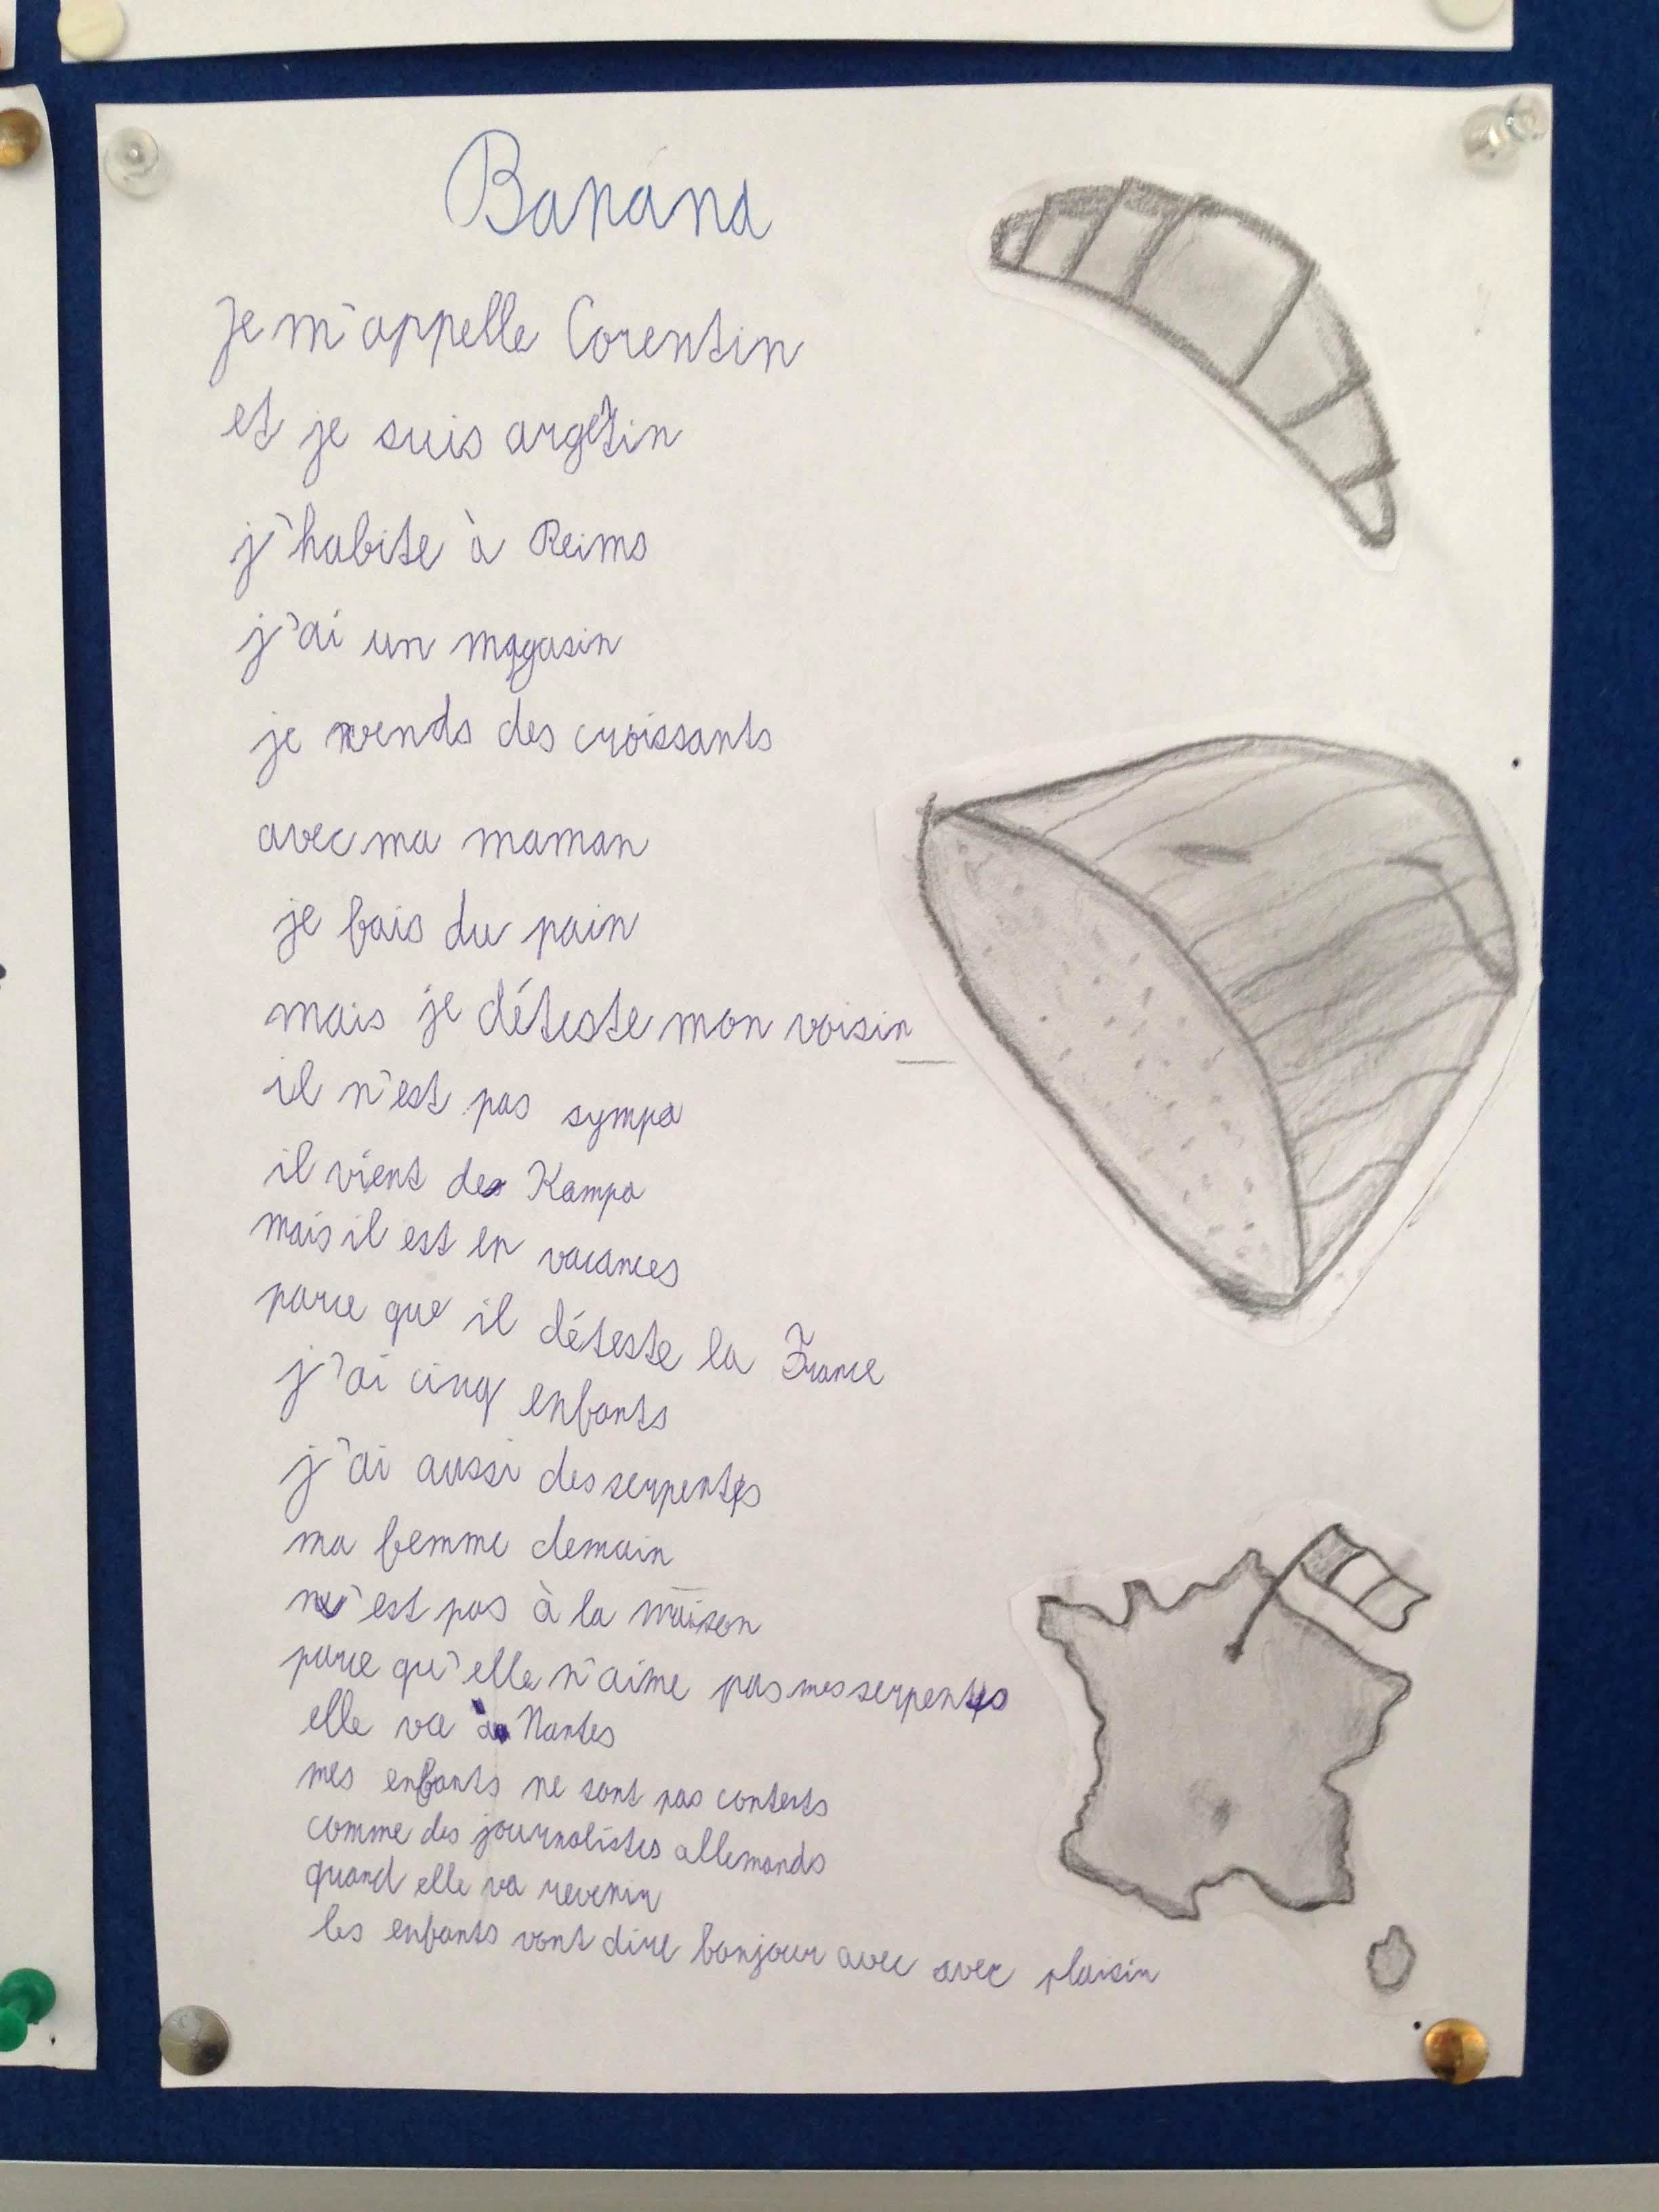 Banána
Je m'appelle Corentin
et je suis argetin
j'habite à Reims
j'ai un magasin
je vends des croissants
avec ma maman
je fais du pain
mais je déteste mon voisin
il n'est pas sympa
il vient de Kampa
mais il est en vacances
parce que il déteste la France
j'ai cinq enfants
j'ai aussi des serpents
ma femme demain
n'est pas à la maison
parce qu'elle n'aime pas mes serpents
elle va à Nantes
mes enfants ne sont pas contents
comme des journalistes allemands
quand elle va revenir
les enfants vont dire bonjour avec avec plaisir